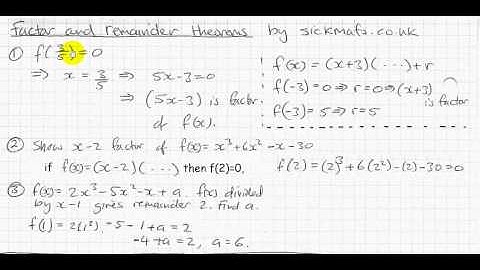 Factor and remainder theorems by sickmaths.co.uk
① f(3/5) = 0
⇒ x = 3/5 ⇒ 5x-3=0
⇒ (5x-3) is factor
of f(x).
f(x) = (x+3)(...)+r
f(-3)=0 ⇒ r=0 ⇒ (x+3) is factor
f(-3)=5 ⇒ r=5
② Show x-2 factor of f(x)=x³+6x²-x-30
if f(x)=(x-2)(...) then f(2)=0, f(2)=(2)³+6(2²)-(2)-30=0
③ f(x)= 2x³-5x²-x+a. f(x) divided
by x-1 gives remainder 2. Find a.
f(1)=2(1³)-5-1+a=2
-4+a=2, a=6.